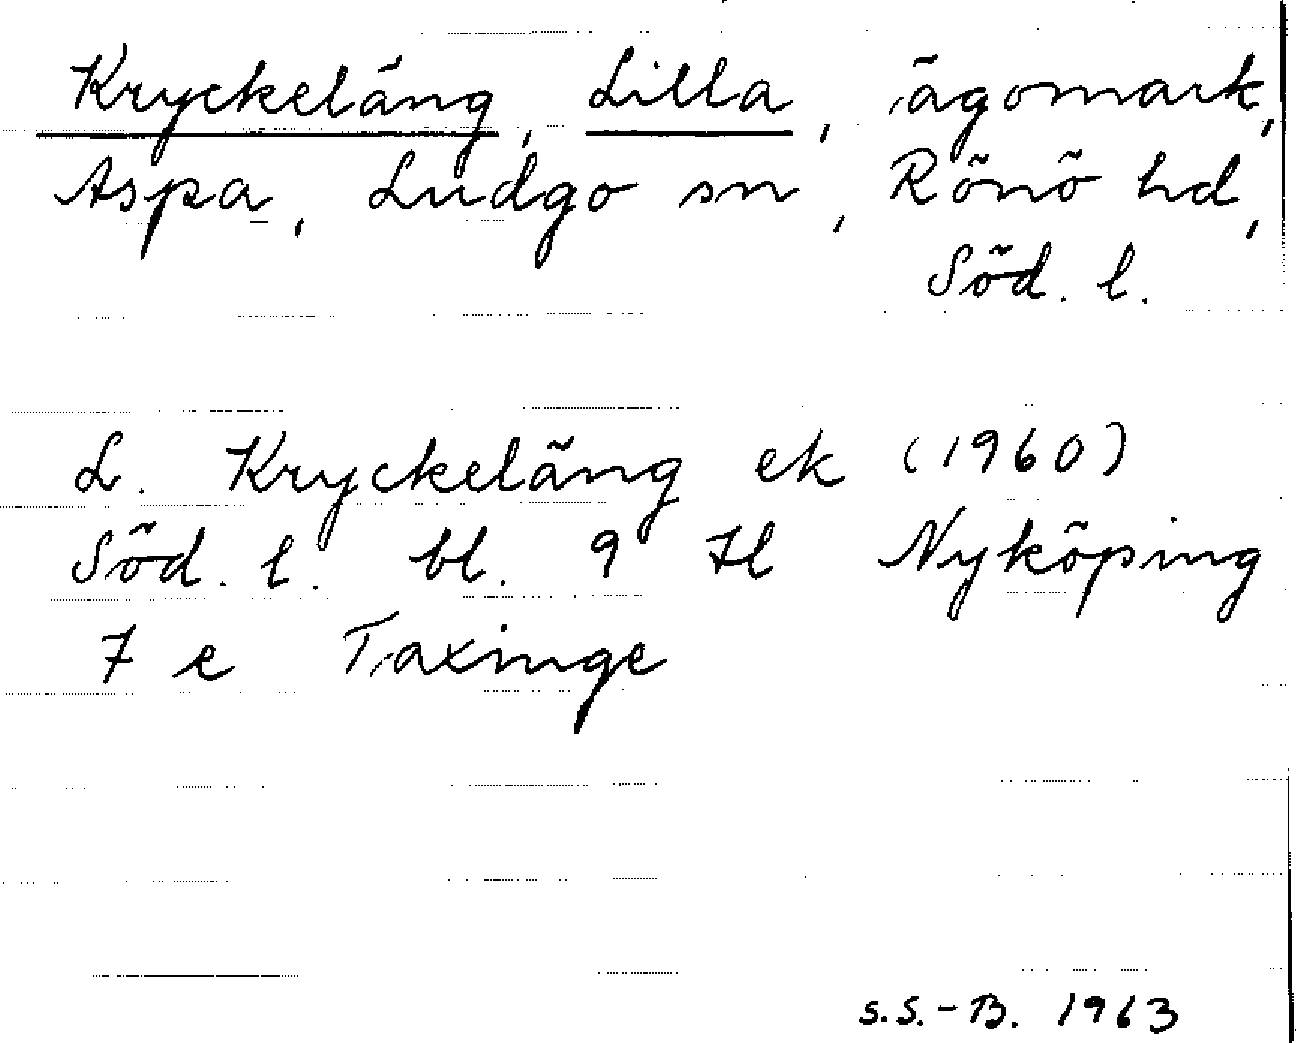 Kryckeläng, Lilla, ägomark,
Aspa, Ludgo sn, Rönö hd,
Söd. l.
L. Kryckeläng ek (1960)
Söd. l. bl. 9 H Nyköping
7 e Taxinge
S.S.-B. 1963